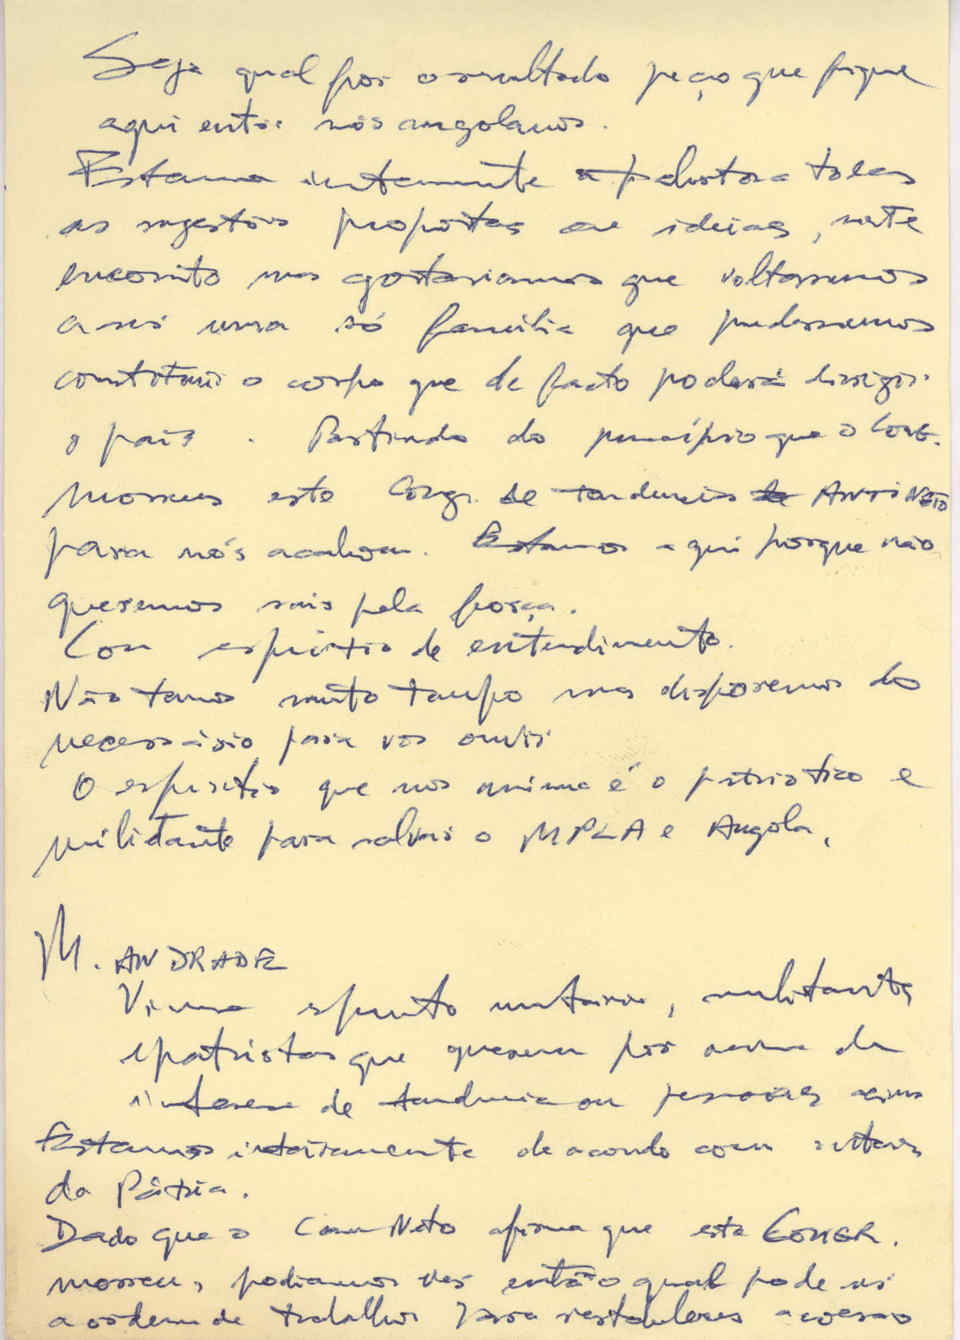 Seja qual for o resultado peço que fique
aqui entre nós angolanos.
Estamos inteiramente abertos a todas
as sugestões propostas ou ideias, neste
encontro mas gostaríamos que voltassemos
a ser uma só família que pudessemos
constituir o corpo que de facto poderá dirigir
o país. Partindo do princípio que o Cong.
morreu este Congr. de tendencias ANTI NETO
para nós acabou. Estamos aqui porque não
queremos mais pela força.
Com espírito de entendimento.
Não temos muito tempo mas disporemos do
necessário para vos ouvir
O espírito que nos anima é o patriótico e
militante para salvar o MPLA e Angola.
M. ANDRADE
Vimos espirito unitário, militantes,
e patriotas que querem por acima de
interesse de tendencia ou pessoais
Estamos inteiramente de acordo com
da Pátria.
Dado que o Cam Neto afirma que este CONGR.
morreu, podiamos ver então qual pode ser
a ordem de trabalhos para restabelecer a coesão